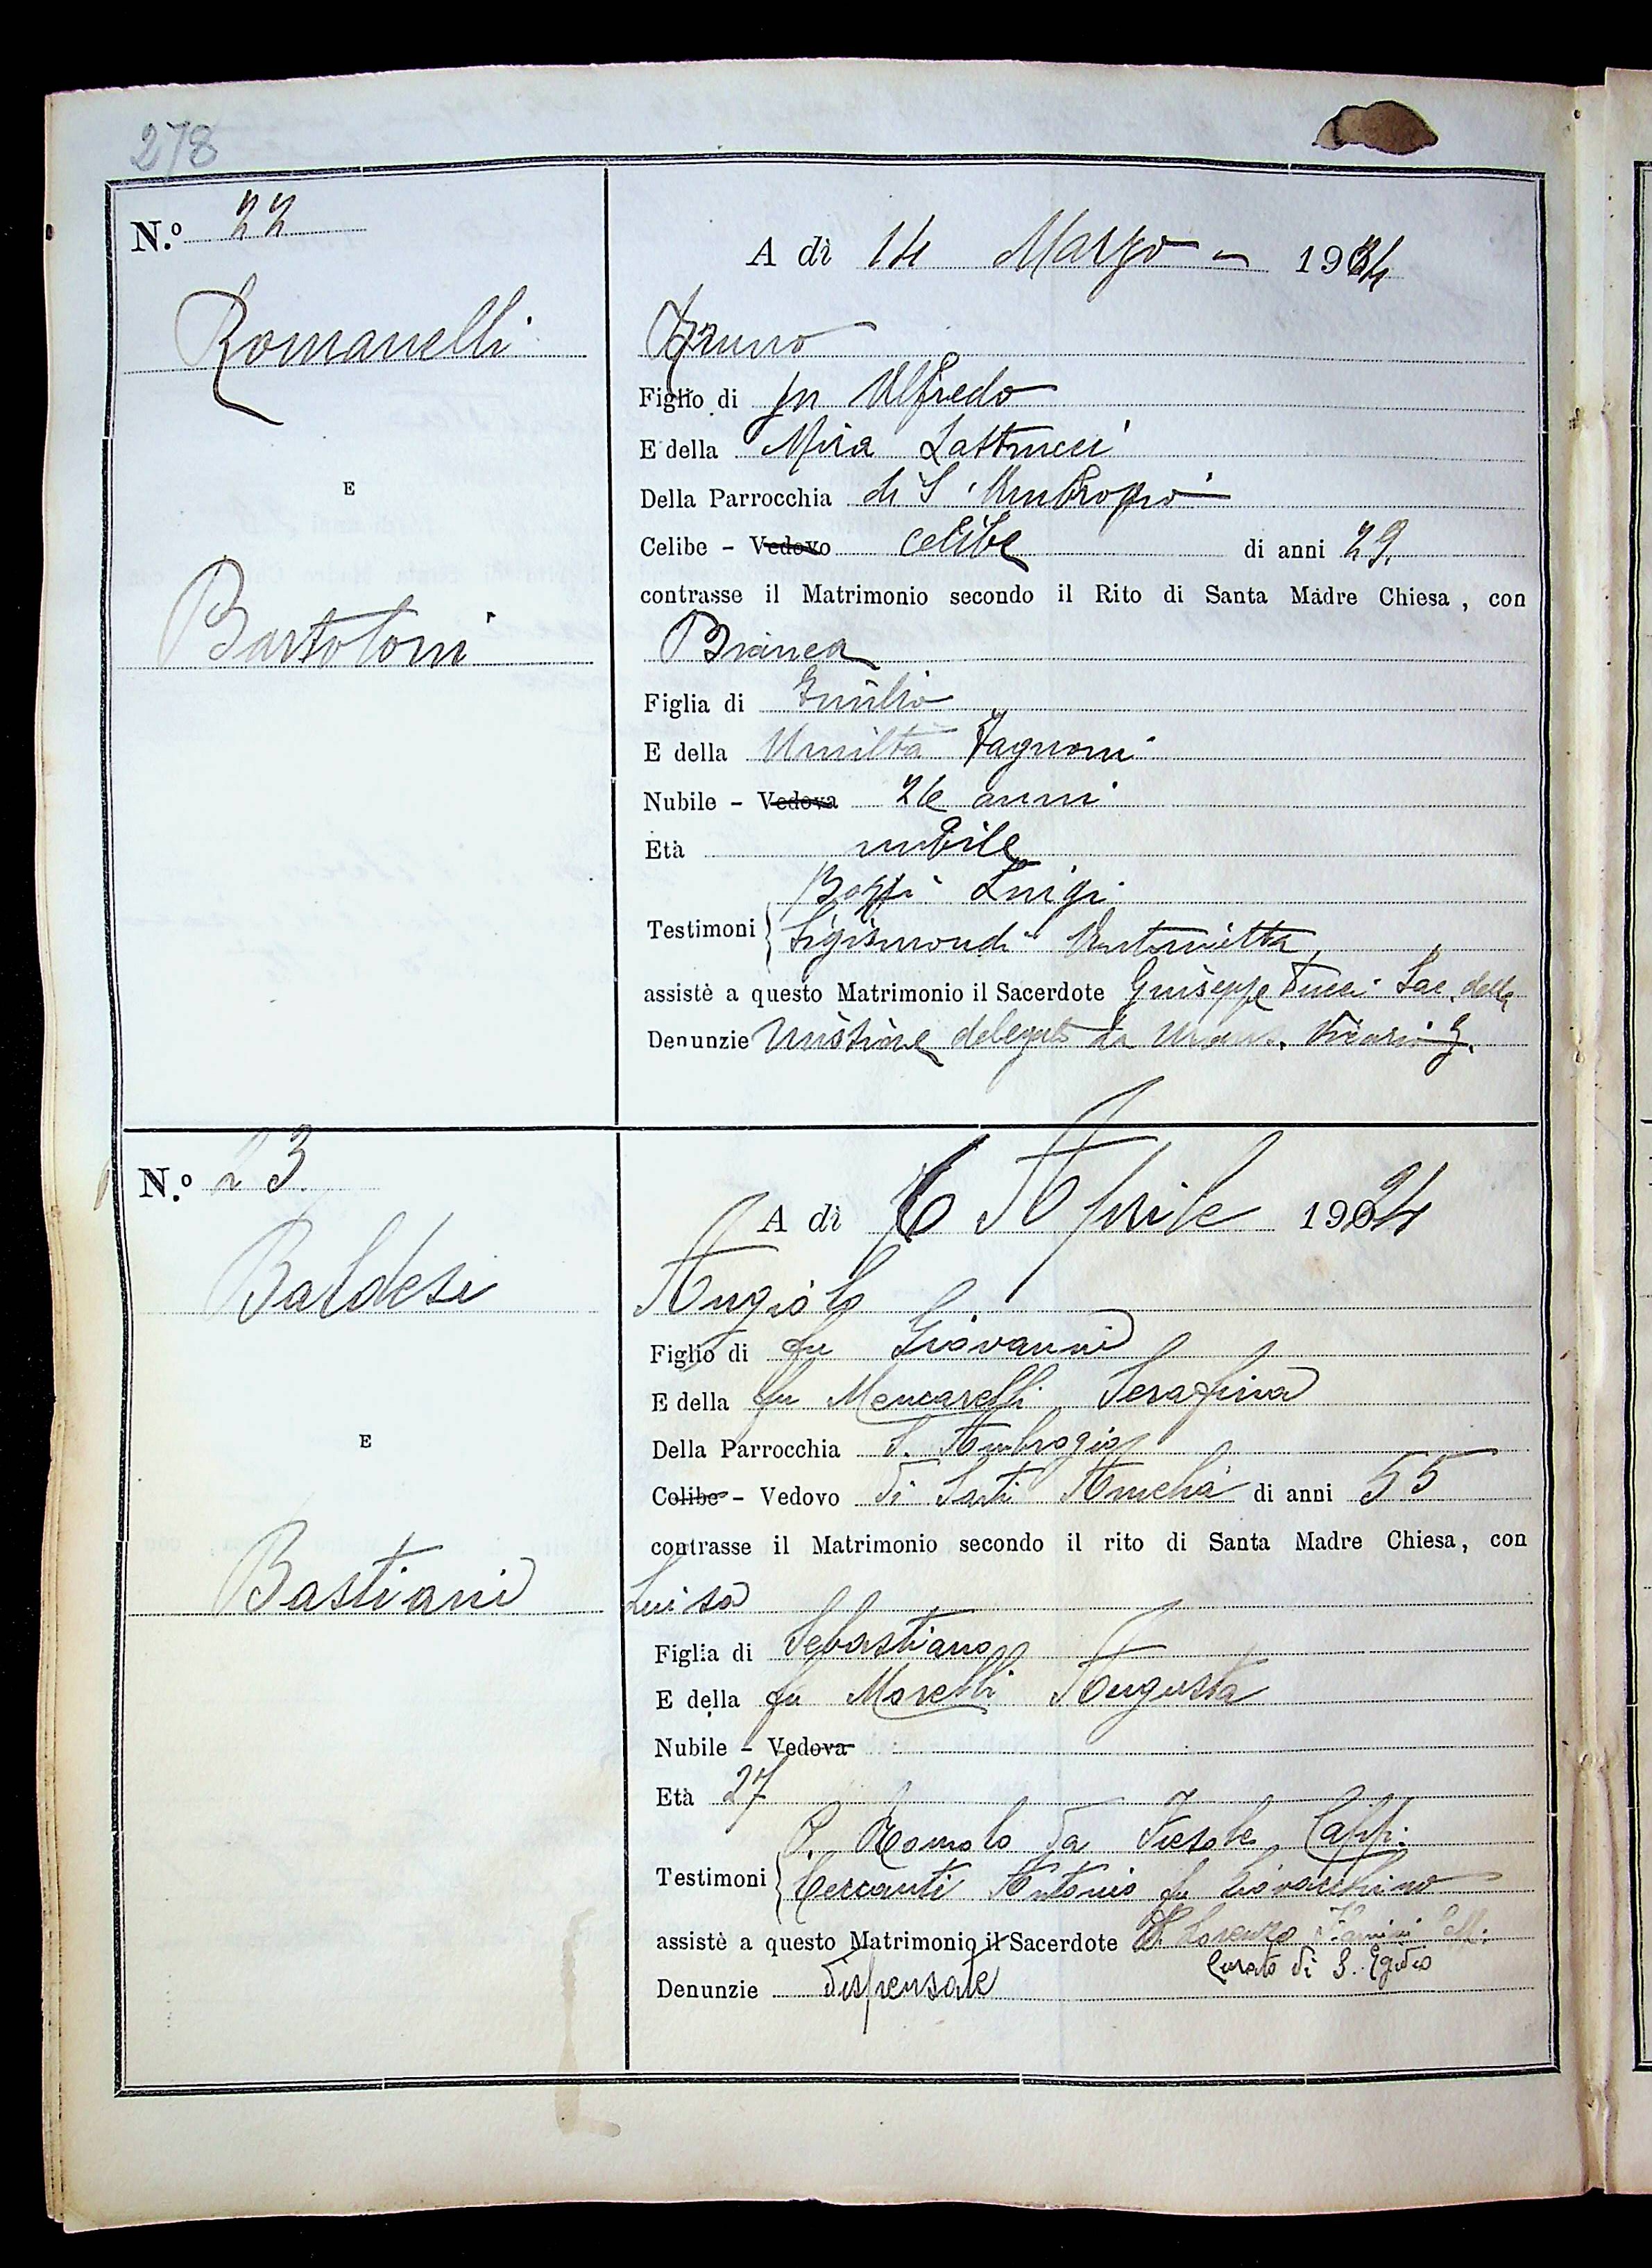 278
N.º 22
A dì 14 Marzo - 1924
Romanelli
Bruno
Figlio di fu Alfredo
E della Mira Lastrucci
E
Della Parrocchia di S. Ambrogio
Celibe - Vedovo celibe di anni 29
contrasse il Matrimonio secondo il Rito di Santa Madre Chiesa, con
Bartoloni
Bianca
Figlia di Emilio
E della Umiltà Fagnoni
Nubile - Vedova 26 anni
Età nubile
Bozzi Luigi
Testimoni Sigismondi Antonietta
assistè a questo Matrimonio il Sacerdote Giuseppe Tucci Sac. della
Denunzie Missione delegato da Mons. Vicario G.
N.º 23
A dì 6 Aprile 1924
Baldesi
Angiolo
Figlio di fu Giovanni
E della fu Mencarelli Serafina
E
Della Parrocchia S. Ambrogio
Celibe - Vedovo di Sarti Amelia di anni 55
contrasse il Matrimonio secondo il rito di Santa Madre Chiesa, con
Bastiani
Luisa
Figlia di Sebastiano
E della fu Morelli Augusta
Nubile - Vedova
Età 27
P. Romolo da Fiesole Capp.
Testimoni Mercanti Antonio fu Giovacchino
assistè a questo Matrimonio il Sacerdote P. Lorenzo
Curato di S. Egidio
Denunzie dispensate